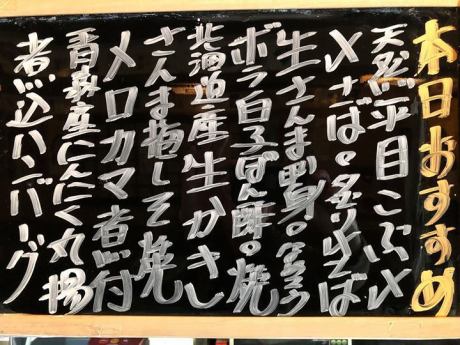 本日おすすめ
天然平目こぶ〆
〆さば。炙り〆さば
生さんま刺身。なめろう
ボラ白子ぽん酢。焼
北海道産生かき
さんま抱して焼
メロカマ煮付
青森産にんにく丸揚
煮込ハンバーグ